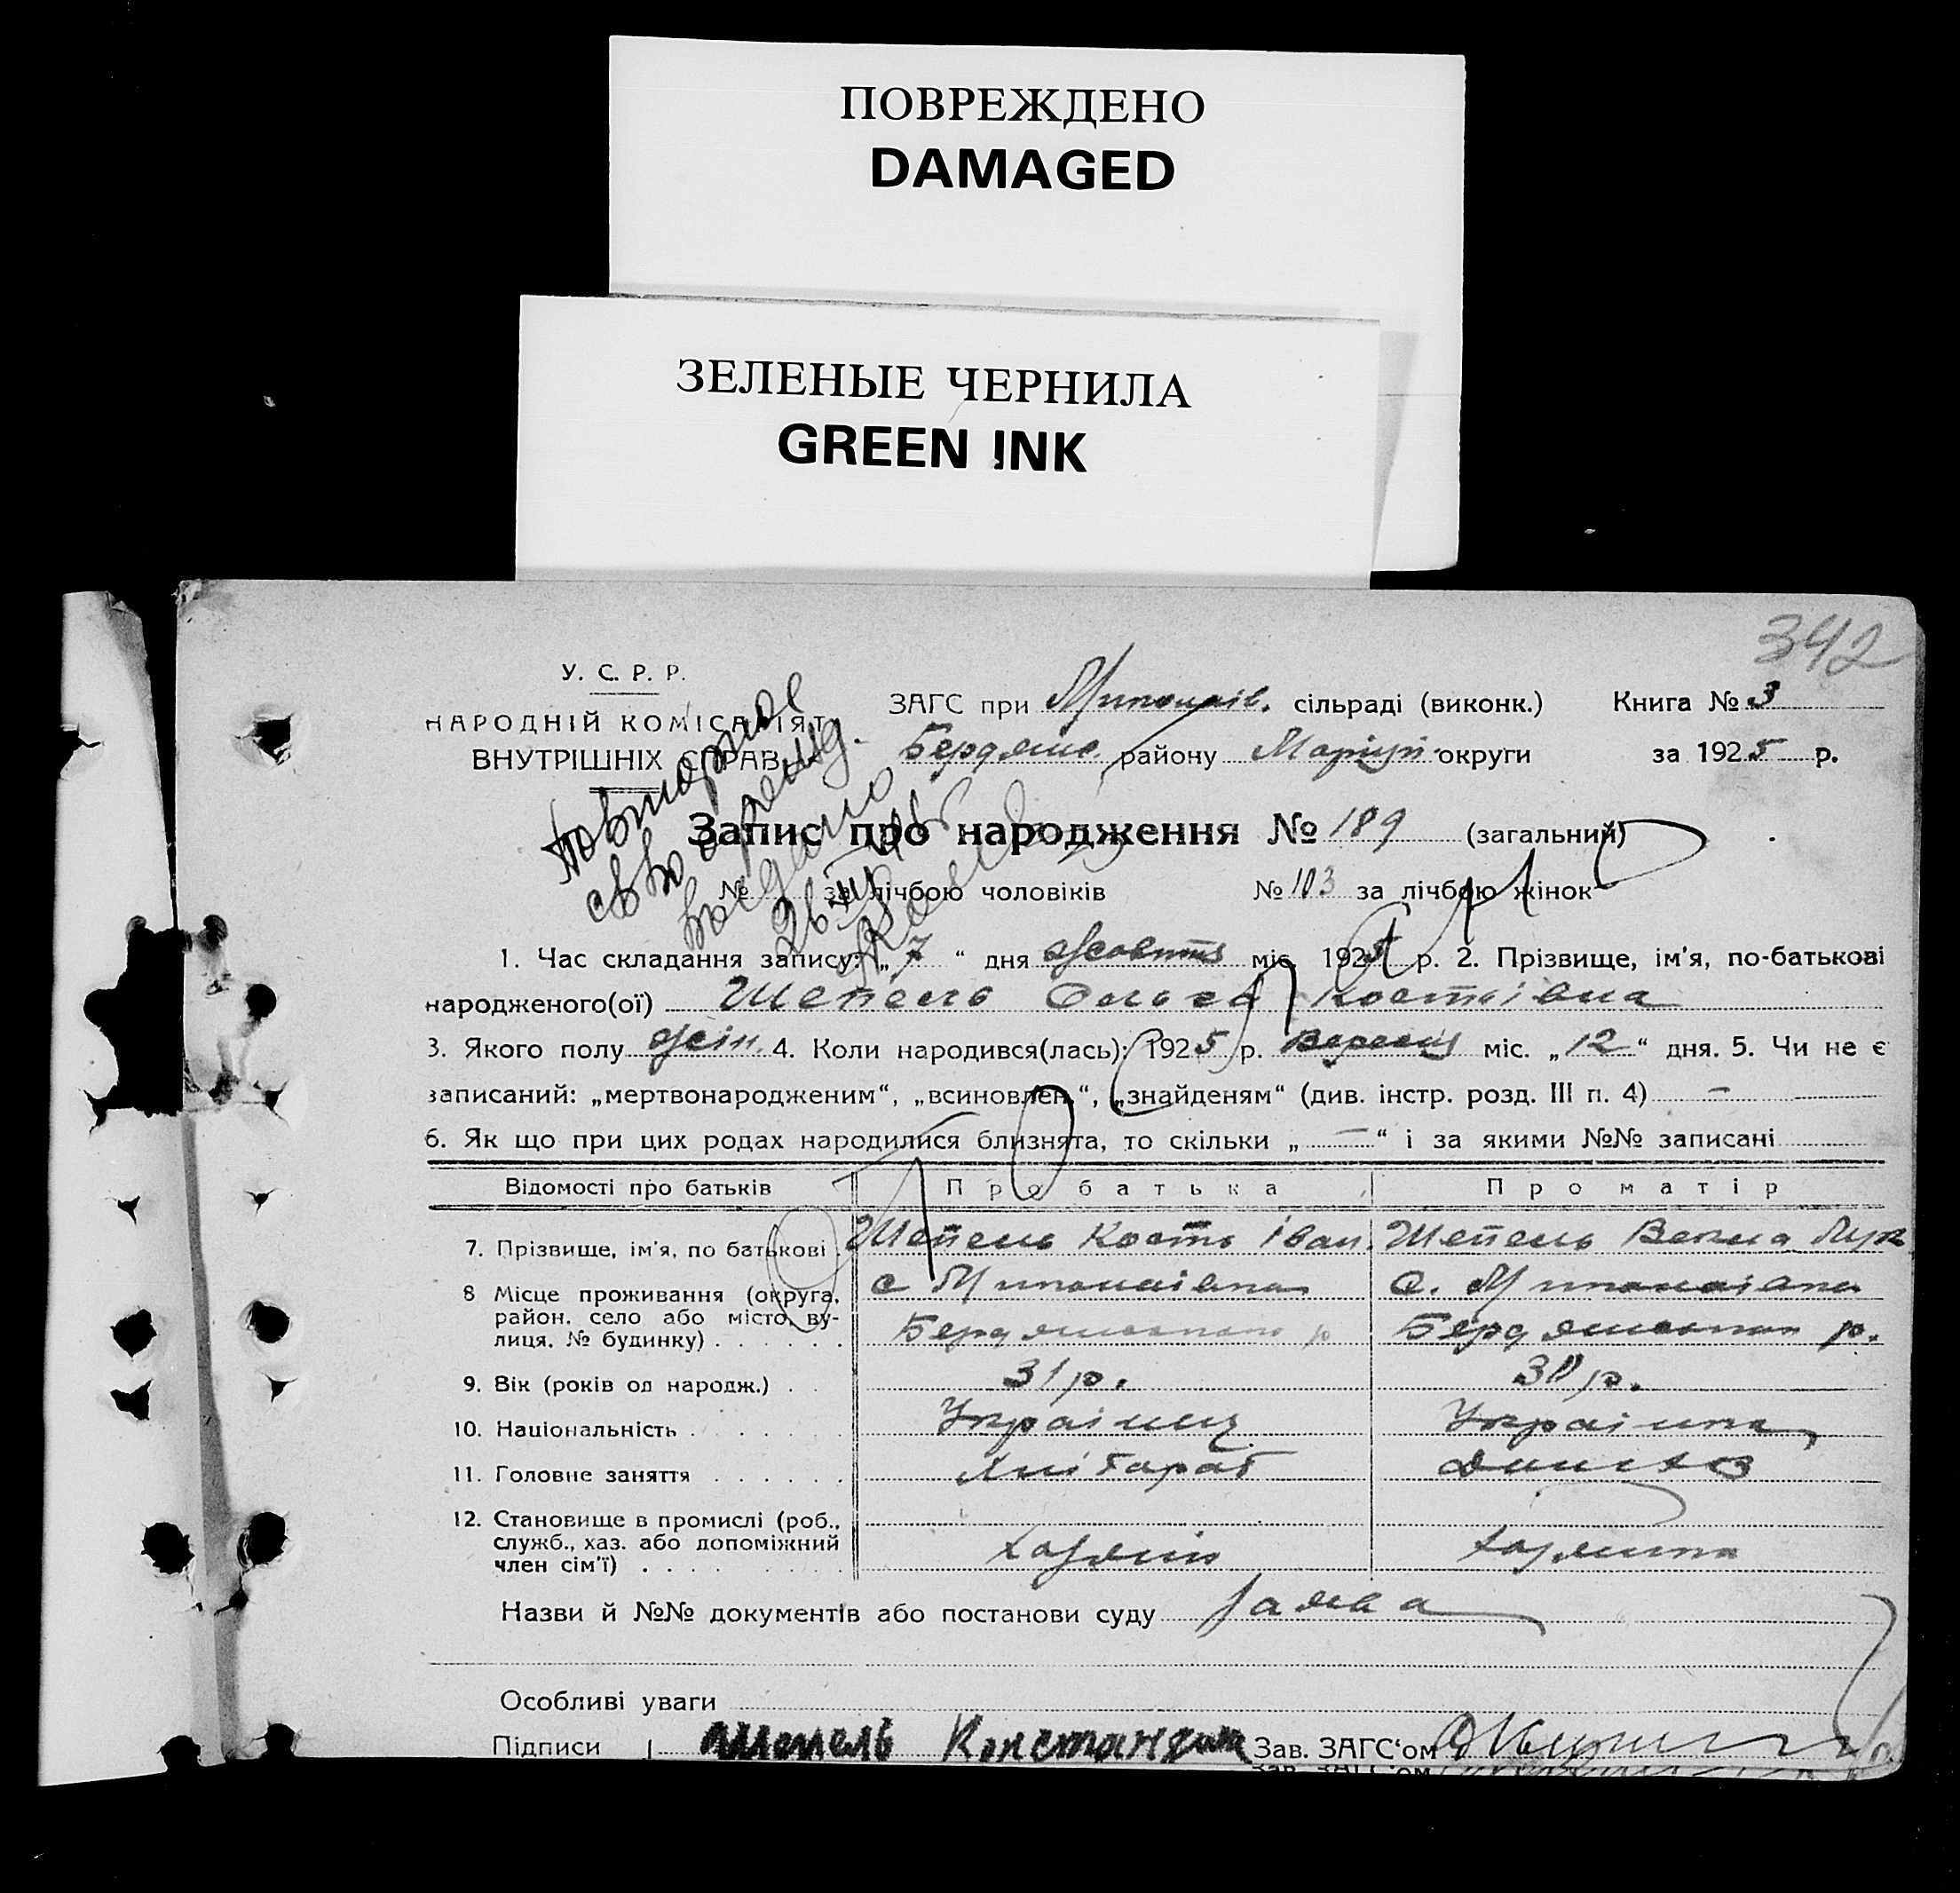 ПОВРЕЖДЕНО
DAMAGED
ЗЕЛЕНЫЕ ЧЕРНИЛА
GREEN INK
342
У. С. Р. Р.
НАРОДНІЙ КОМІСАРІЯТ
ВНУТРІШНІХ СПРАВ
Повторное
св во о рожд.
выдано
ЗАГС при сільраді (виконк.) Книга № 3
Бердянс. району Маріуп округи за 1925 р.
Запис про народження № 189 (загальний)
№ за лічбою чоловіків № 103 за лічбою жінок
1. Час складання запису: „ 7 “ дня жовтня міс. 1925 р. 2. Прізвище, ім'я, по-батькові
народженого(ої) Шепель Ольга Костівна
3. Якого полу жін. 4. Коли народився(лась): 1925 р. Вересня міс. „ 12 “ дня. 5. Чи не є
записаний: „мертвонародженим“, „всиновлен.“, „знайденям“ (див. інстр. розд. III п. 4) –
6. Як що при цих родах народилися близнята, то скільки „ – “ і за якими №№ записані
Відомості про батьків Про батька Про матір
7. Прізвище, ім'я, по батькові . Шепель Кость Іван. Шепель Векла Лук
8 Місце проживання (округа, с с.
район, село або місто, ву-
лиця, № будинку) . . . . . . Бердянського р Бердянського р.
9. Вік (років од народж.) . . 31 р. 30 р.
10. Національність . . . . . . Українец Українка
11. Головне заняття . . . . . .
12. Становище в промислі (роб.,
служб., хаз. або допоміжний Хазяїн Хазяйка
член сім'ї) . . . . . . . .
Назви й №№ документів або постанови суду Заява
Особливі уваги
Підписи Шепель Зав. ЗАГС‘ом
Зав. ЗАГС‘ом